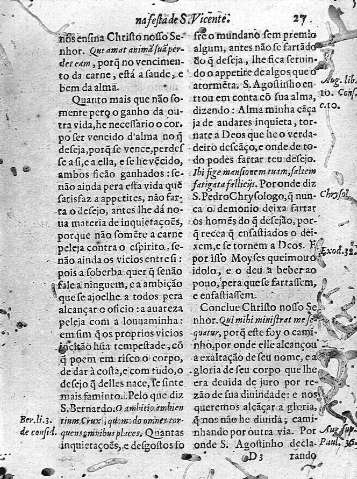 na festa de S. Vicente.
27
nos ensina Christo nosso Se-
nhor. Qui amat animã suã per-
det eam, porq̃ no vencimen-
to da carne, està a saude, e
bem da alma.
Quanto mais que não so-
mente pero o ganho da ou-
tra vida, he necessario o cor-
po ser vencido d'alma no q̃
deseja, porq̃ se vence, perdese
a si, e a ella, e se he vẽcido,
ambos ficão ganhados: se-
não ainda pera esta vida q̃
satisfaz a appetites, não far-
ta o desejo, antes lhe dá no-
ua materia de inquietações,
porque não somẽte a carne
peleja contra o espirito, se-
não ainda os vicios entre si:
pois a soberba quer q̃ senão
fale a ninguem, e a ambição
que se ajoelhe a todos pera
alcançar o officio: a auareza
peleja com a louçaminha:
em sim q̃ os proprios vicios
hũa tempestade, cõ
q̃ poem em risco o corpo,
de dar à costa, e com tudo, o
desejo q̃ delles nace, se sinte
mais faminto. Pelo que diz
S. Bernardo. O ambitio ambien-
tium Crux, quomodo omnes tor-
quens omnibus places. Quantas
inquietações, e desgostos so
fre o mundano sem premio
algum, antes não se fartão
do q̃ deseja, lhe fica seruin-
do o appetite de algos que o
atormẽta. S. Agostinho en-
trou em conta cõ sua alma,
dizendo: Alma minha cãça
ja de andares inquieta, tor-
nate a Deos que he o verda-
deiro descãço, e onde de to-
do podes fartar teu desejo.
Ibi fige mansionem tuam, saltem
fatigata fallacijs. Por onde diz
S. Pedro Chrysologo, q̃ nun-
ca o demonio deixa fartar
os homẽs do q̃ desejão, por-
q̃ receа q̃ enfastiados o dei-
xem, e se tornem a Deos. E
por isso Moyses queimou o
idolo, e o deu a beber ao
pouo, pera que se fartassem,
e enfastiassem.
Conclue Christo nosso Se-
nhor. Qui mihi ministrat me se-
quatur, porq̃ este foy o cami-
nho, por onde elle alcançou
a exaltação de seu nome, e a
gloria de seu corpo que lhe
era deuida de juro por re-
zão de sua diuindade: e nos
queremos alcãçar a gloria,
q̃ nos não he diuida; cami-
nhando por outra via. Por
onde S. Agostinho decla-
D 3
rando
Ber. li. 3.
de consid.
Aug. lib.
10. Conf.
c. 10.
Chrysol.
Exod. 32.
Aug. sup.